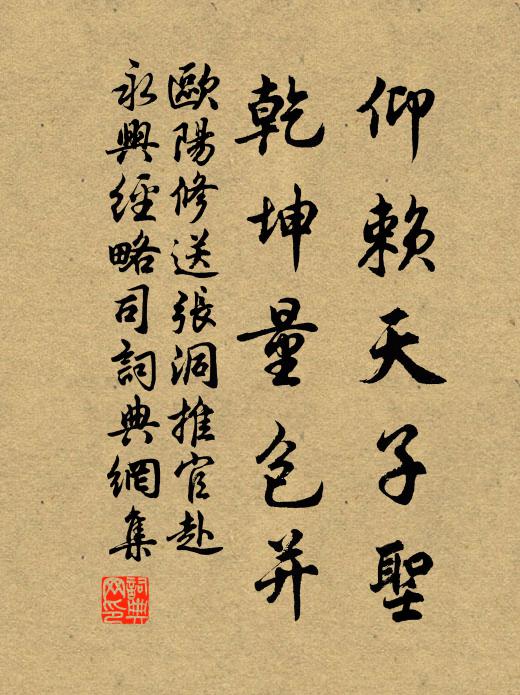 仰賴天子聖
乾坤量包并
歐陽修送張洞推官赴
永興經略司詞典網集
詞典網印